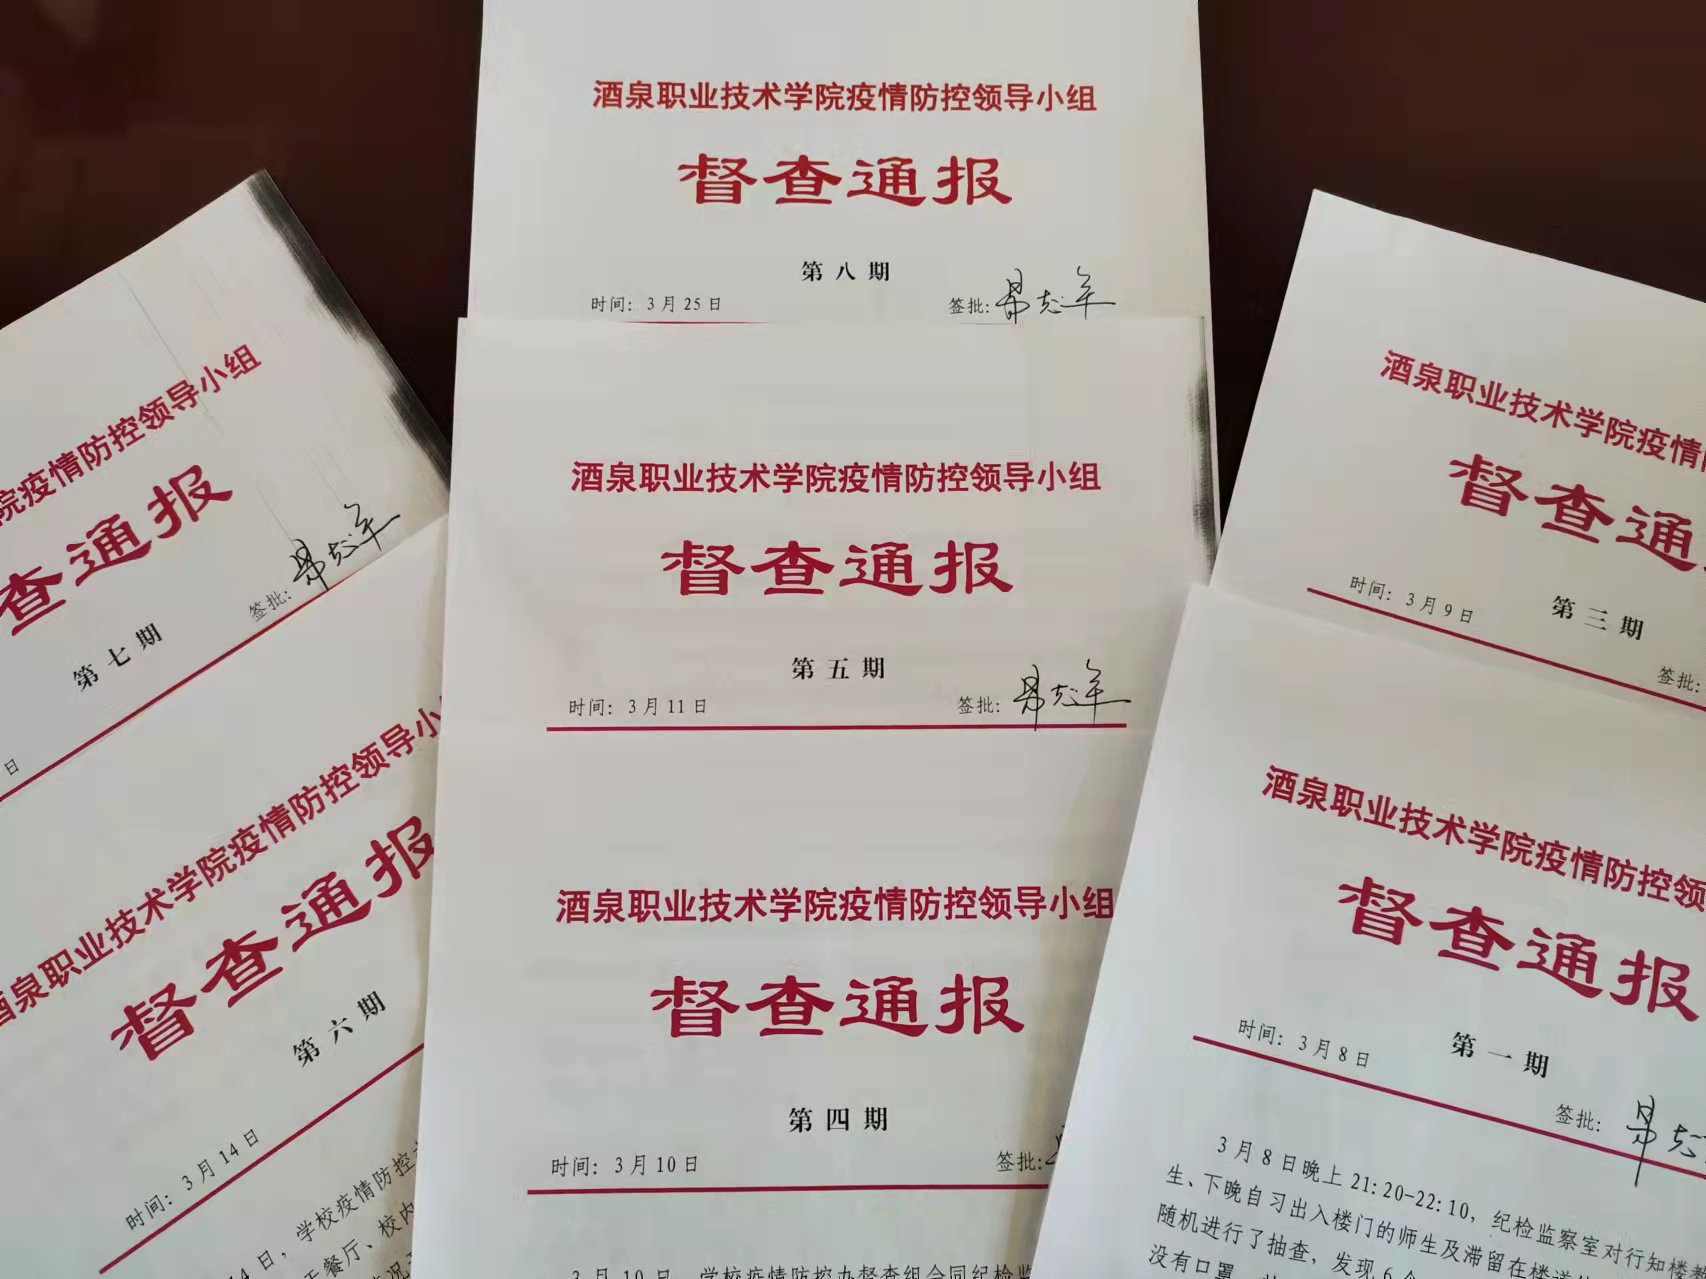 酒泉职业技术学院疫情防控领导小组
督查通报
第八期
时间：3月25日
签批：
院疫情防控领导小组
查通报
第七期
签批：
日
酒泉职业技术学院疫情防控领导小组
督查通报
第五期
时间：3月11日
签批：
酒泉职业技术学院疫情
督查通
第三期
时间：3月9日
签批：
酒泉职业技术学院疫情防控领导小
督查通报
第六期
时间：3月14日
4日，学校疫情防控
餐厅、校内
酒泉职业技术学院疫情防控领导小组
督查通报
第四期
时间：3月10日
签批：
3月10日，学校疫情防控办督查组会同纪检监
酒泉职业技术学院疫情防控领
督查通报
第一期
时间：3月8日
签批：
3月8日晚上21:20-22:10，纪检监察室对行知楼
生、下晚自习出入楼门的师生及滞留在楼道
随机进行了抽查，发现6个
没有口罩